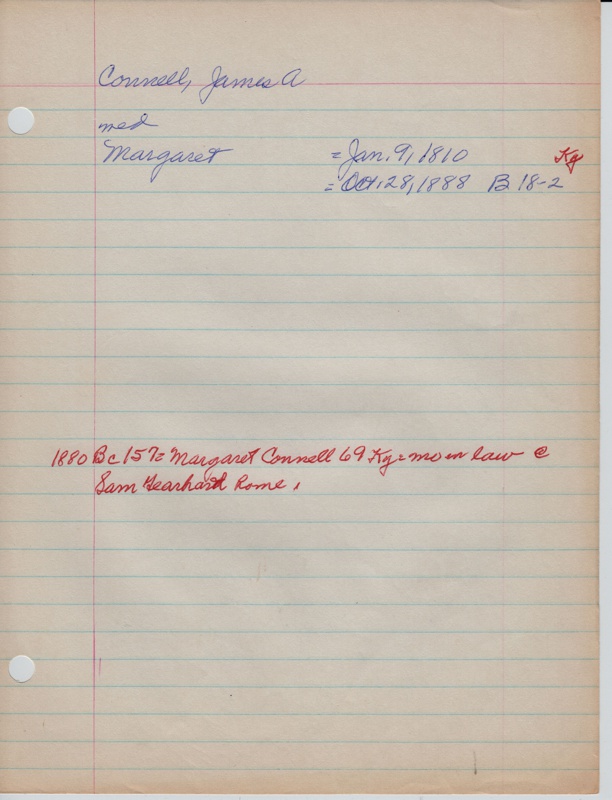 Connell, James A
med
Margaret = Jan. 9, 1810 Kg
= Oct. 28, 1888 B 18-2
1880 Bc 157= Margaret Connell 69 Kg = mo in law @
Sam Gearhart Rome.